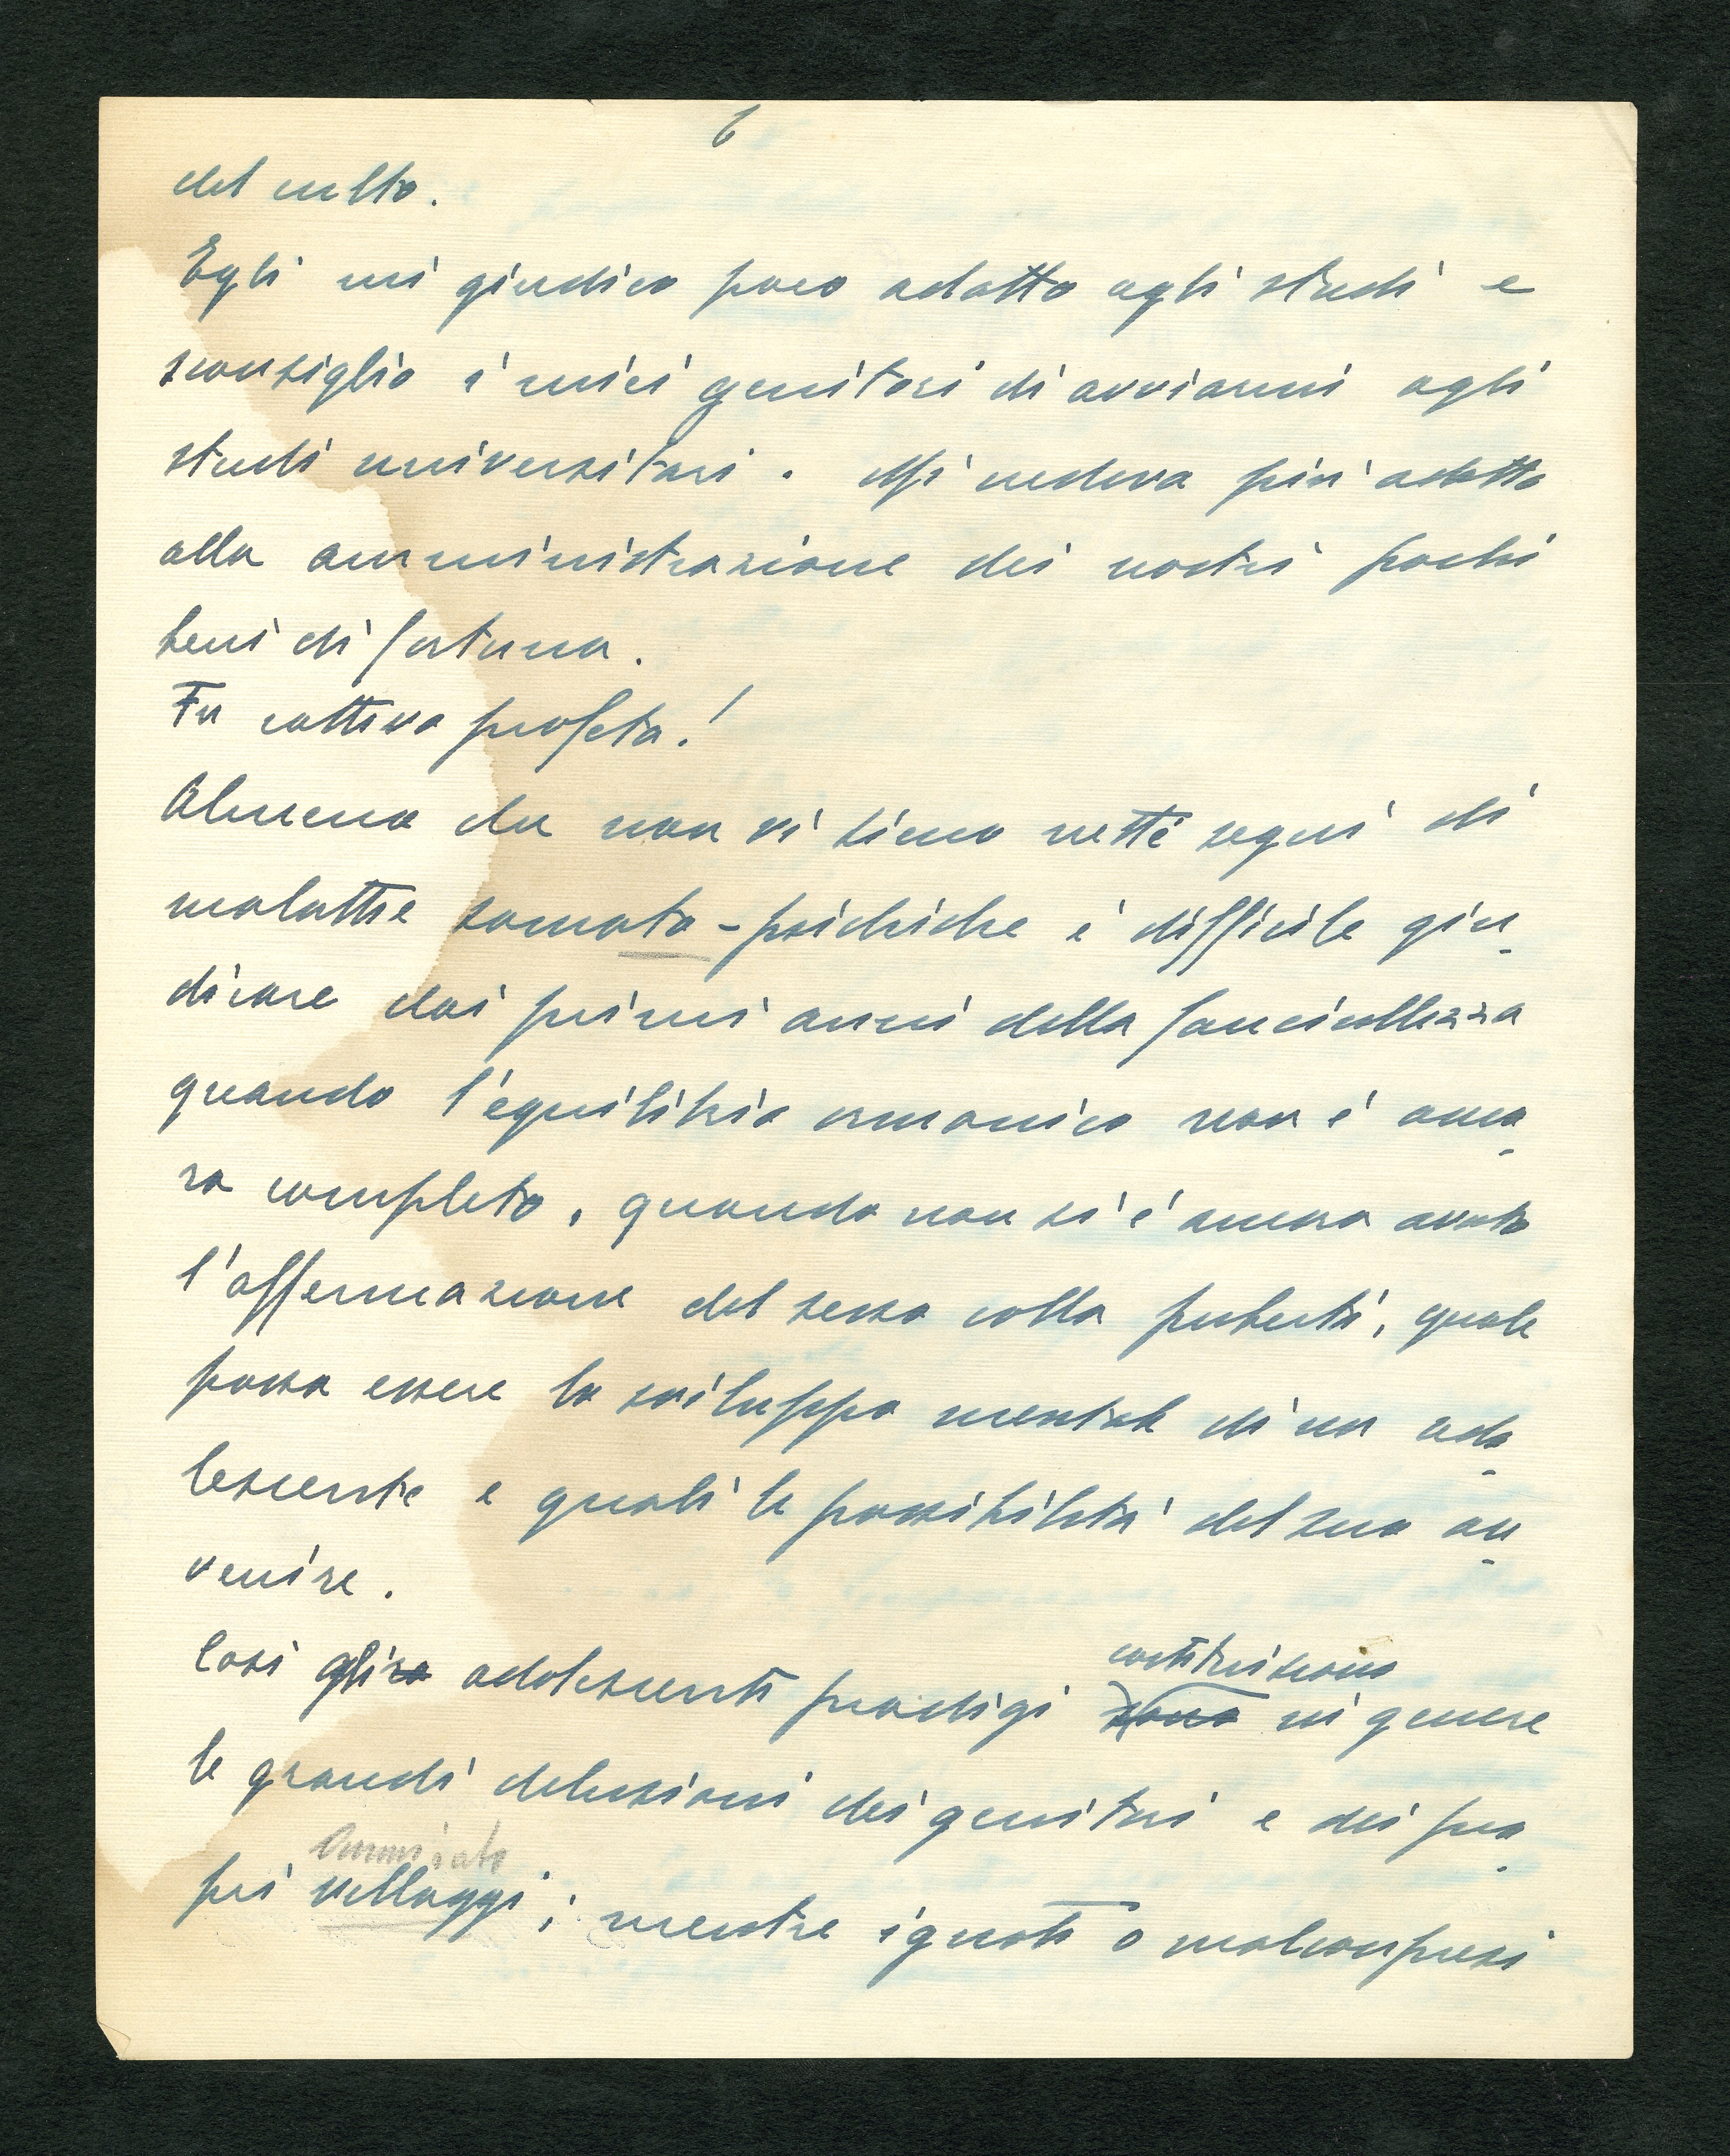 6
del culto.
Egli mi giudico poco adatto agli studi e
sconsiglio i miei genitori di avviarmi agli
studi universitari. Mi vedeva piú adatto
alla amministrazione dei nostri pochi
beni di fortuna.
Fu cattivo profeta!
Almeno che non vi siano netti segni di
malattie somato-psichiche é difficile giu
dicare dai primi anni della fanciullezza
quando l'equilibrio armonico non é anco
ra completo, quando non si é ancora avuta
l'affermazione del sesso colla pubertá, quale
possa essere lo sviluppo mentale di un ado
lescente e quali le possibilitá del suo av
venire.
Cosi gli adolescenti prodigi costituiscono
sono in genere
le grandi delusioni dei genitori e dei pro
pri villaggi; mentre ignoti o malcompresi